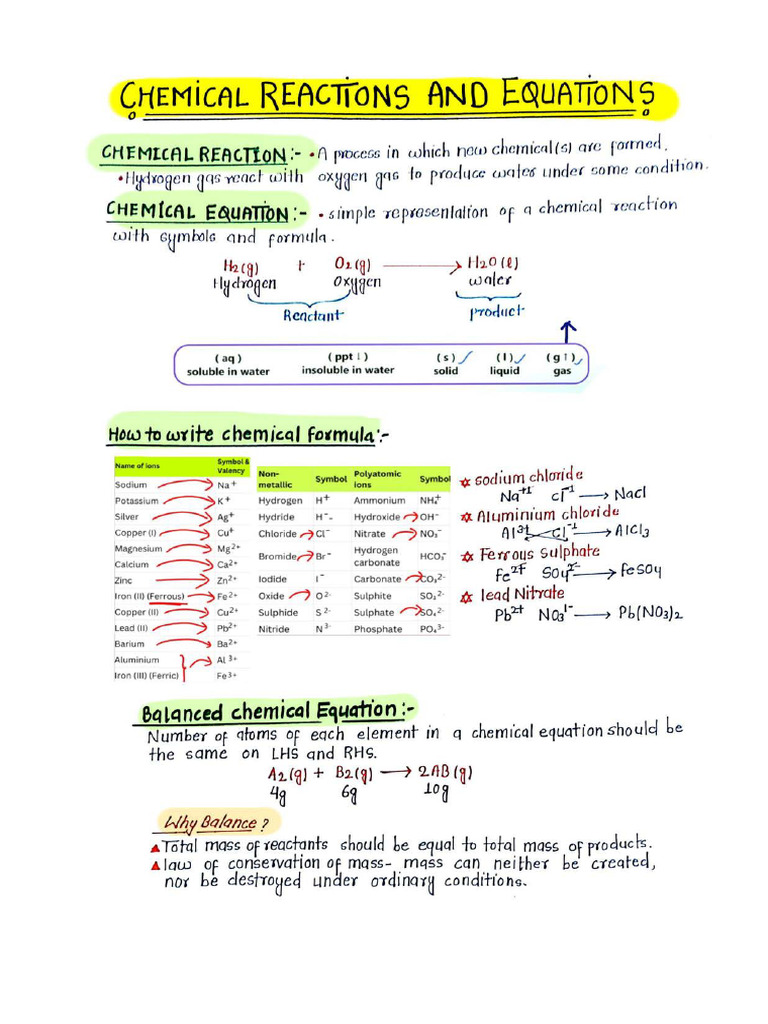 CHEMICAL REACTIONS AND EQUATIONS
CHEMICAL REACTION:- • A process in which new chemical(s) are formed.
• Hydrogen gas react with oxygen gas to produce water under some condition.
CHEMICAL EQUATION:- • simple representation of a chemical reaction
with symbols and formula.
H2(g) + O2(g) → H2O(l)
Hydrogen Oxygen water
Reactant product
(aq) (ppt↓) (s) (l) (g↑)
soluble in water insoluble in water solid liquid gas
How to write chemical formula:-
Name of ions Symbol & Valency
Sodium Na⁺
Potassium K⁺
Silver Ag⁺
Copper (I) Cu⁺
Magnesium Mg²⁺
Calcium Ca²⁺
Zinc Zn²⁺
Iron (II) (Ferrous) Fe²⁺
Copper (II) Cu²⁺
Lead (II) Pb²⁺
Barium Ba²⁺
Aluminium Al³⁺
Iron (III) (Ferric) Fe³⁺
Non-metallic Symbol Polyatomic ions Symbol
Hydrogen H⁺ Ammonium NH₄⁺
Hydride H⁻ Hydroxide OH⁻
Chloride Cl⁻ Nitrate NO₃⁻
Bromide Br⁻ Hydrogen carbonate HCO₃⁻
Iodide I⁻ Carbonate CO₃²⁻
Oxide O²⁻ Sulphite SO₃²⁻
Sulphide S²⁻ Sulphate SO₄²⁻
Nitride N³⁻ Phosphate PO₄³⁻
sodium chloride
Na⁺¹ cl⁻¹ → Nacl
Aluminium chloride
Al³⁺ cl⁻¹ → AlCl3
Ferrous Sulphate
Fe²⁺ SO4²⁻ → FeSO4
lead Nitrate
Pb²⁺ NO3¹⁻ → Pb(NO3)2
Balanced chemical Equation:-
Number of atoms of each element in a chemical equation should be
the same on LHS and RHS.
A2(g) + B2(g) → 2AB(g)
4g 6g 10g
Why Balance?
Total mass of reactants should be equal to total mass of products.
law of conservation of mass- mass can neither be created,
nor be destroyed under ordinary conditions.